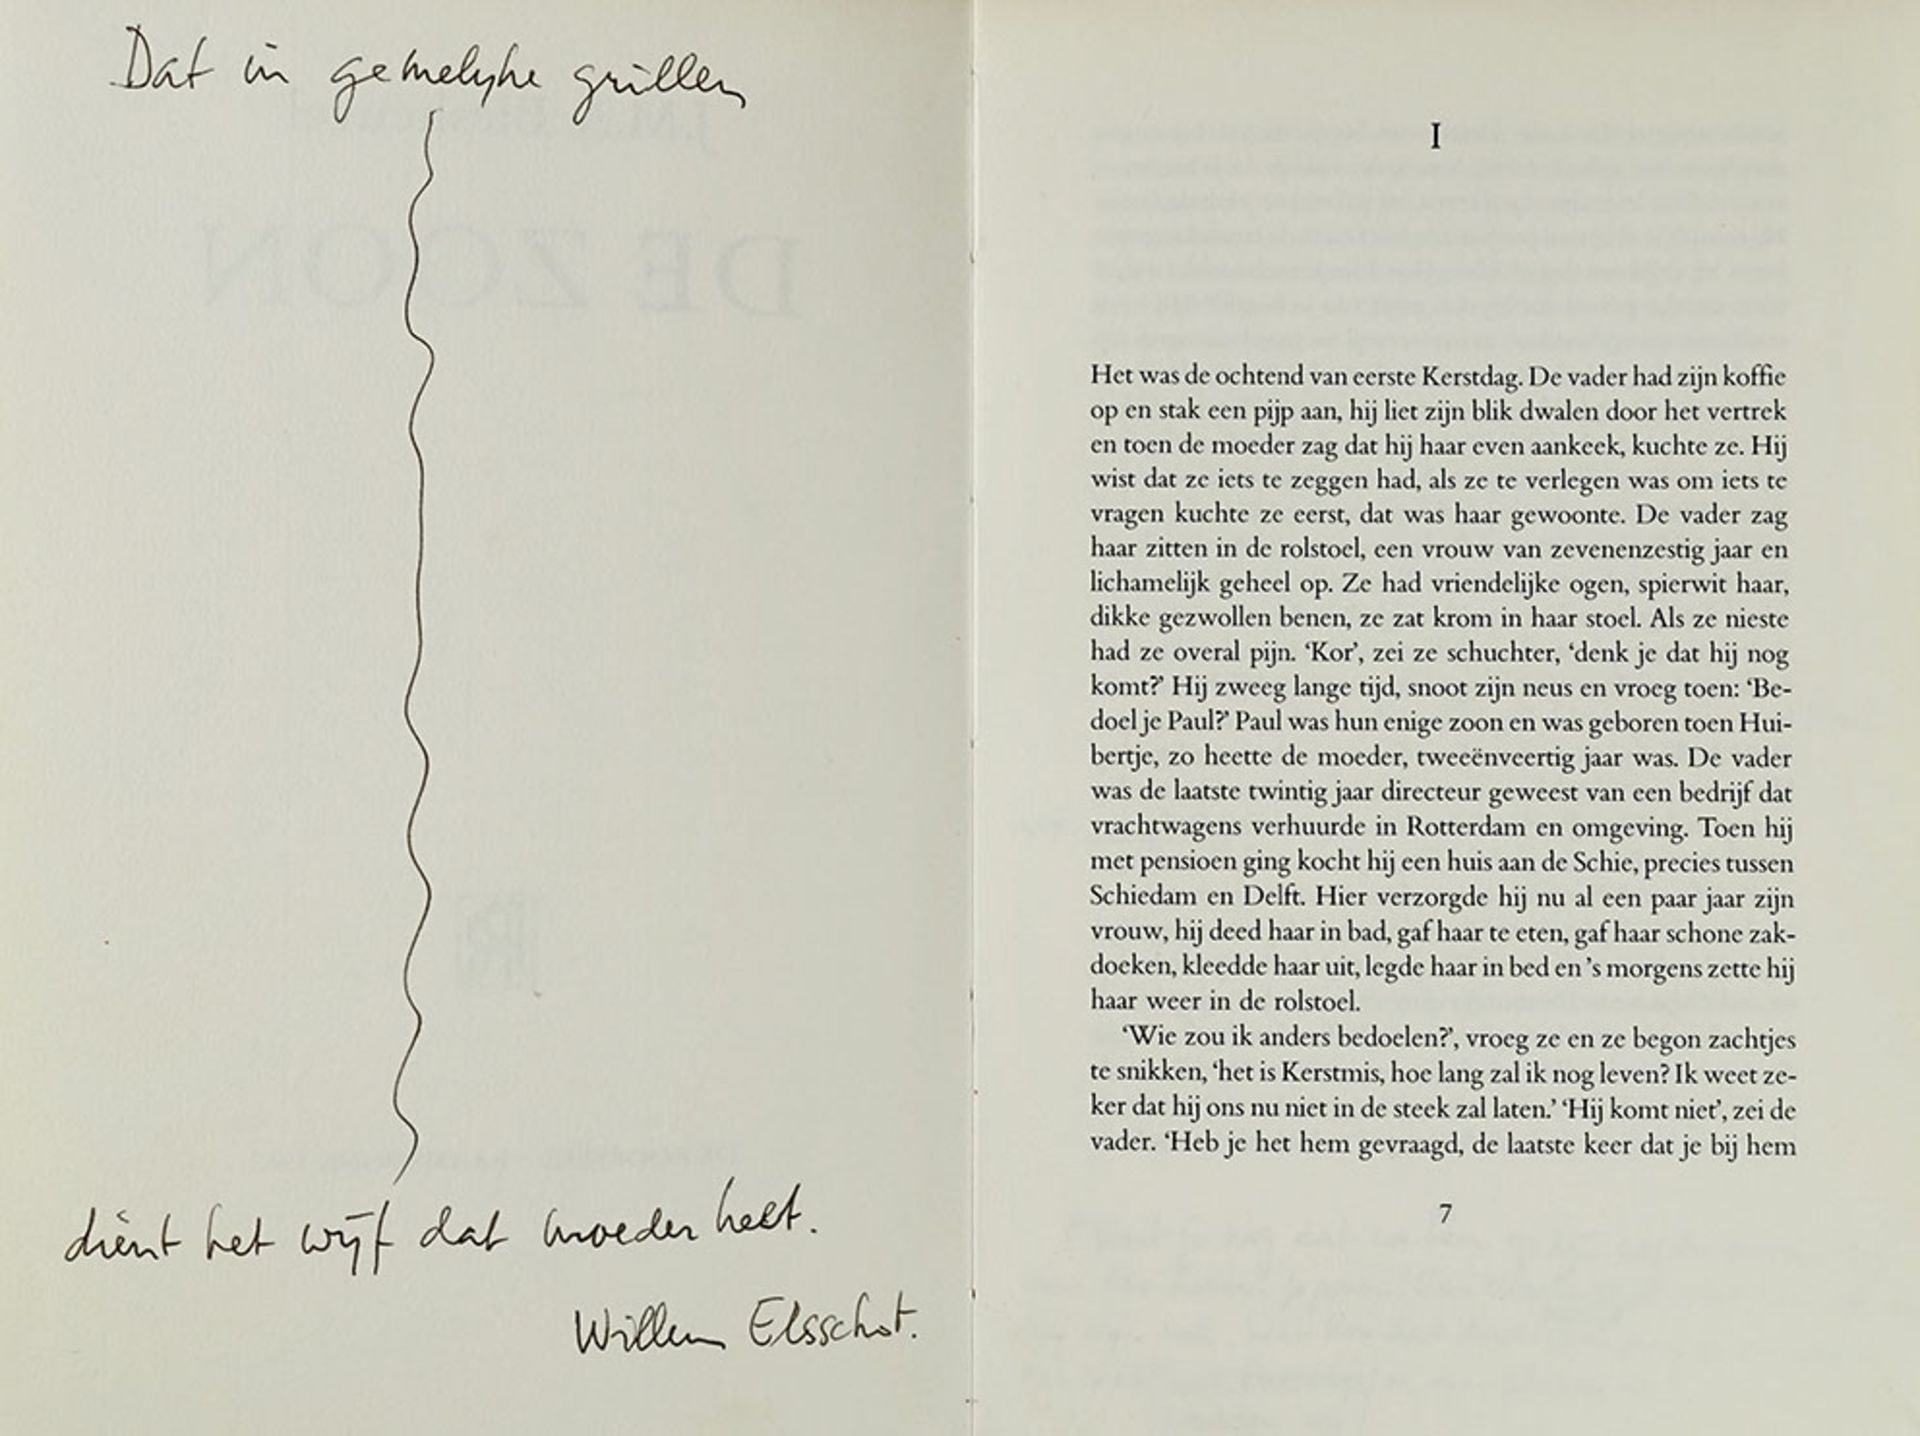 Dat in gemelyke grillen
dient het wijf dat moeder heet.
Willem Elsschot.
DE ZOON
I
Het was de ochtend van eerste Kerstdag. De vader had zijn koffie
op en stak een pijp aan, hij liet zijn blik dwalen door het vertrek
en toen de moeder zag dat hij haar even aankeek, kuchte ze. Hij
wist dat ze iets te zeggen had, als ze te verlegen was om iets te
vragen kuchte ze eerst, dat was haar gewoonte. De vader zag
haar zitten in de rolstoel, een vrouw van zevenenzestig jaar en
lichamelijk geheel op. Ze had vriendelijke ogen, spierwit haar,
dikke gezwollen benen, ze zat krom in haar stoel. Als ze nieste
had ze overal pijn. ‘Kor’, zei ze schuchter, ‘denk je dat hij nog
komt?’ Hij zweeg lange tijd, snoot zijn neus en vroeg toen: ‘Be-
doel je Paul?’ Paul was hun enige zoon en was geboren toen Hui-
bertje, zo heette de moeder, tweeënveertig jaar was. De vader
was de laatste twintig jaar directeur geweest van een bedrijf dat
vrachtwagens verhuurde in Rotterdam en omgeving. Toen hij
met pensioen ging kocht hij een huis aan de Schie, precies tussen
Schiedam en Delft. Hier verzorgde hij nu al een paar jaar zijn
vrouw, hij deed haar in bad, gaf haar te eten, gaf haar schone zak-
doeken, kleedde haar uit, legde haar in bed en ’s morgens zette hij
haar weer in de rolstoel.
‘Wie zou ik anders bedoelen?’, vroeg ze en ze begon zachtjes
te snikken, ‘het is Kerstmis, hoe lang zal ik nog leven? Ik weet ze-
ker dat hij ons nu niet in de steek zal laten.’ ‘Hij komt niet’, zei de
vader. ‘Heb je het hem gevraagd, de laatste keer dat je bij hem
7